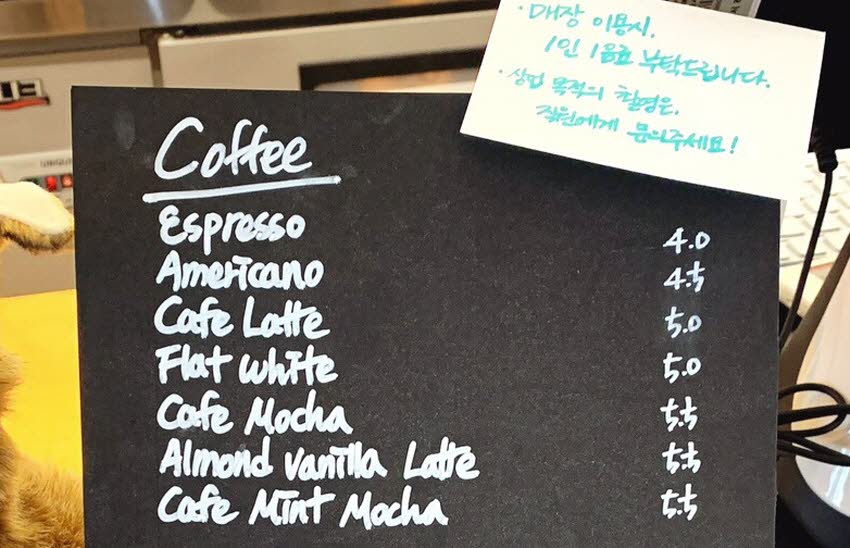 · 매장 이용시,
1인 1음료 부탁드립니다.
· 상업 목적의 촬영은,
직원에게 문의주세요!
Coffee
Espresso 4.0
Americano 4.5
Cafe Latte 5.0
Flat white 5.0
Cafe Mocha 5.5
Almond vanilla Latte 5.5
Cafe Mint Mocha 5.5
UNIQUE